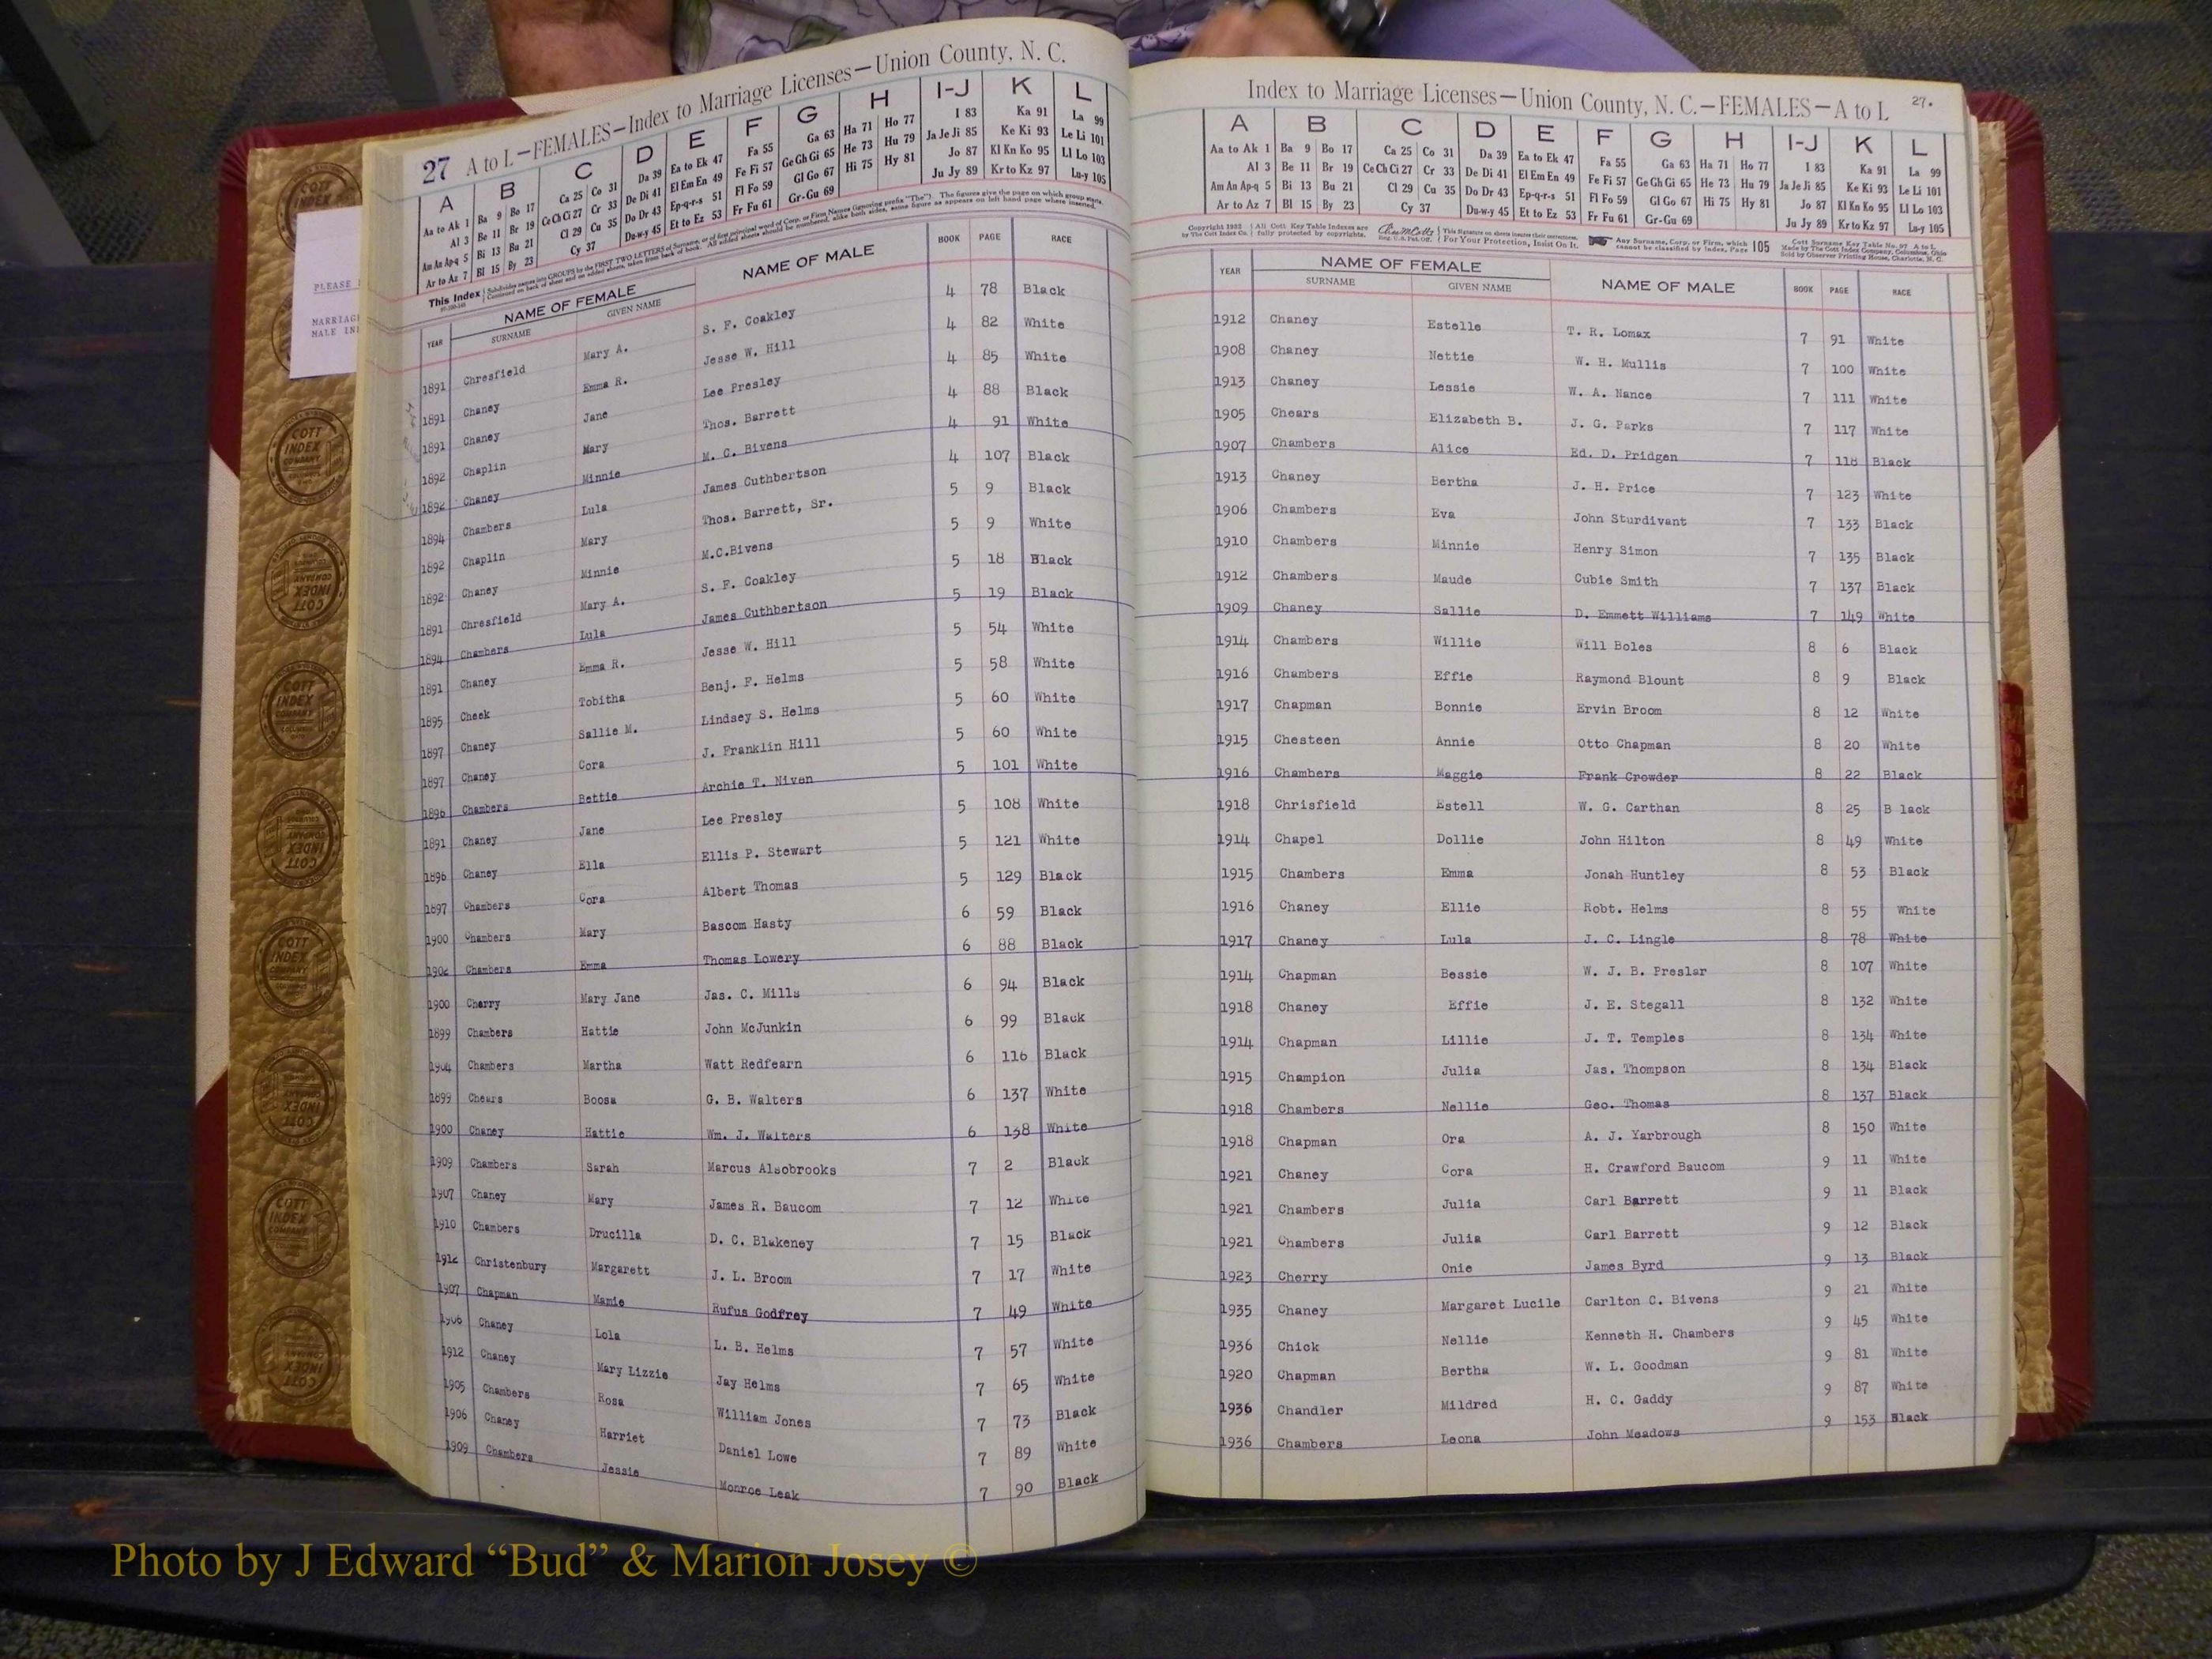 27 A to L—FEMALES—Index to Marriage Licenses—Union County, N. C.
A B C D E F G H I-J K L
Aa to Ak 1 Ba 9 Bo 17 Ca 25 Co 31 Da 39 Ea to Ek 47 Fa 55 Ga 63 Ha 71 Ho 77 I 83 Ka 91 La 99
Al 3 Be 11 Br 19 Ce Ch Ci 27 Cr 33 De Di 41 El Em En 49 Fe Fi 57 Ge Gh Gi 65 He 73 Hu 79 Ja Je Ji 85 Ke Ki 93 Le Li 101
Am An Ap-q 5 Bi 13 Bu 21 Cl 29 Cu 35 Do Dr 43 Ep-q-r-s 51 Fl Fo 59 Gl Go 67 Hi 75 Hy 81 Jo 87 Kl Kn Ko 95 Ll Lo 103
Ar to Az 7 Bl 15 By 23 Cy 37 Du-w-y 45 Et to Ez 53 Fr Fu 61 Gr-Gu 69 Ju Jy 89 Kr to Kz 97 Lu-y 105
This Index Subdivides names into GROUPS by the FIRST TWO LETTERS of Surname, or of first principal word of Corp. or Firm Names (ignoring prefix "The"). The figures give the page on which group starts.
Continued on back of sheet and on added sheets, taken from back of book. All added sheets should be numbered, alike both sides, same figure as appears on left hand page where inserted.
YEAR NAME OF FEMALE NAME OF MALE BOOK PAGE RACE
SURNAME GIVEN NAME
1891 Chresfield Mary A. S. F. Coakley 4 78 Black
1891 Chaney Emma R. Jesse W. Hill 4 82 White
1891 Chaney Jane Lee Presley 4 85 White
1892 Chaplin Mary Thos. Barrett 4 88 Black
1892 Chaney Minnie M. C. Bivens 4 91 White
1894 Chambers Lula James Cuthbertson 4 107 Black
1892 Chaplin Mary Thos. Barrett, Sr. 5 9 Black
1892 Chaney Minnie M.C.Bivens 5 9 White
1891 Chresfield Mary A. S. F. Coakley 5 18 Black
1894 Chambers Lula James Cuthbertson 5 19 Black
1891 Chaney Emma R. Jesse W. Hill 5 54 White
1895 Cheek Tobitha Benj. F. Helms 5 58 White
1897 Chaney Sallie M. Lindsey S. Helms 5 60 White
1897 Chaney Cora J. Franklin Hill 5 60 White
1896 Chambers Bettie Archie T. Niven 5 101 White
1891 Chaney Jane Lee Presley 5 108 White
1896 Chaney Ella Ellis P. Stewart 5 121 White
1897 Chambers Cora Albert Thomas 5 129 Black
1900 Chambers Mary Bascom Hasty 6 59 Black
1902 Chambers Emma Thomas Lowery 6 88 Black
1900 Cherry Mary Jane Jas. C. Mills 6 94 Black
1899 Chambers Hattie John McJunkin 6 99 Black
1904 Chambers Martha Watt Redfearn 6 116 Black
1899 Chears Boosa G. B. Walters 6 137 White
1900 Chaney Hattie Wm. J. Walters 6 138 White
1909 Chambers Sarah Marcus Alsobrooks 7 2 Black
1907 Chaney Mary James R. Baucom 7 12 White
1910 Chambers Drucilla D. C. Blakeney 7 15 Black
1912 Christenbury Margarett J. L. Broom 7 17 White
1907 Chapman Mamie Rufus Godfrey 7 49 White
1906 Chaney Lola L. B. Helms 7 57 White
1912 Chaney Mary Lizzie Jay Helms 7 65 White
1905 Chambers Rosa William Jones 7 73 Black
1906 Chaney Harriet Daniel Lowe 7 89 White
1909 Chambers Jessie Monroe Leak 7 90 Black
Index to Marriage Licenses—Union County, N. C.—FEMALES—A to L 27.
A B C D E F G H I-J K L
Aa to Ak 1 Ba 9 Bo 17 Ca 25 Co 31 Da 39 Ea to Ek 47 Fa 55 Ga 63 Ha 71 Ho 77 I 83 Ka 91 La 99
Al 3 Be 11 Br 19 Ce Ch Ci 27 Cr 33 De Di 41 El Em En 49 Fe Fi 57 Ge Gh Gi 65 He 73 Hu 79 Ja Je Ji 85 Ke Ki 93 Le Li 101
Am An Ap-q 5 Bi 13 Bu 21 Cl 29 Cu 35 Do Dr 43 Ep-q-r-s 51 Fl Fo 59 Gl Go 67 Hi 75 Hy 81 Jo 87 Kl Kn Ko 95 Ll Lo 103
Ar to Az 7 Bl 15 By 23 Cy 37 Du-w-y 45 Et to Ez 53 Fr Fu 61 Gr-Gu 69 Ju Jy 89 Kr to Kz 97 Lu-y 105
Copyright 1932 by The Cott Index Co. All Cott Key Table Indexes are fully protected by copyrights. This Signature on sheets insures their correctness. For Your Protection, Insist On It. Any Surname, Corp. or Firm, which cannot be classified by index, Page 105 Cott Surname Key Table No. 97 A to L Made by The Cott Index Company, Columbus, Ohio Sold by Observer Printing House, Charlotte, N. C.
YEAR NAME OF FEMALE NAME OF MALE BOOK PAGE RACE
SURNAME GIVEN NAME
1912 Chaney Estelle T. R. Lomax 7 91 White
1908 Chaney Nettie W. H. Mullis 7 100 White
1913 Chaney Lessie W. A. Nance 7 111 White
1905 Chears Elizabeth B. J. G. Parks 7 117 White
1907 Chambers Alice Ed. D. Pridgen 7 118 Black
1913 Chaney Bertha J. H. Price 7 123 White
1906 Chambers Eva John Sturdivant 7 133 Black
1910 Chambers Minnie Henry Simon 7 135 Black
1912 Chambers Maude Cubie Smith 7 137 Black
1909 Chaney Sallie D. Emmett Williams 7 149 White
1914 Chambers Willie Will Boles 8 6 Black
1916 Chambers Effie Raymond Blount 8 9 Black
1917 Chapman Bonnie Ervin Broom 8 12 White
1915 Chesteen Annie Otto Chapman 8 20 White
1916 Chambers Maggie Frank Crowder 8 22 Black
1918 Chrisfield Estell W. G. Carthan 8 25 B lack
1914 Chapel Dollie John Hilton 8 49 White
1915 Chambers Emma Jonah Huntley 8 53 Black
1916 Chaney Ellie Robt. Helms 8 55 White
1917 Chaney Lula J. C. Lingle 8 78 White
1914 Chapman Bessie W. J. B. Preslar 8 107 White
1918 Chaney Effie J. E. Stegall 8 132 White
1914 Chapman Lillie J. T. Temples 8 134 White
1915 Champion Julia Jas. Thompson 8 134 Black
1918 Chambers Nellie Geo. Thomas 8 137 Black
1918 Chapman Ora A. J. Yarbrough 8 150 White
1921 Chaney Cora H. Crawford Baucom 9 11 White
1921 Chambers Julia Carl Barrett 9 11 Black
1921 Chambers Julia Carl Barrett 9 12 Black
1923 Cherry Onie James Byrd 9 13 Black
1935 Chaney Margaret Lucile Carlton C. Bivens 9 21 White
1936 Chick Nellie Kenneth H. Chambers 9 45 White
1920 Chapman Bertha W. L. Goodman 9 81 White
1936 Chandler Mildred H. C. Gaddy 9 87 White
1936 Chambers Leona John Meadows 9 153 Black
PLEASE
MARRIAG
MALE IN
COTT INDEX COMPANY
Photo by J Edward “Bud” & Marion Josey ©